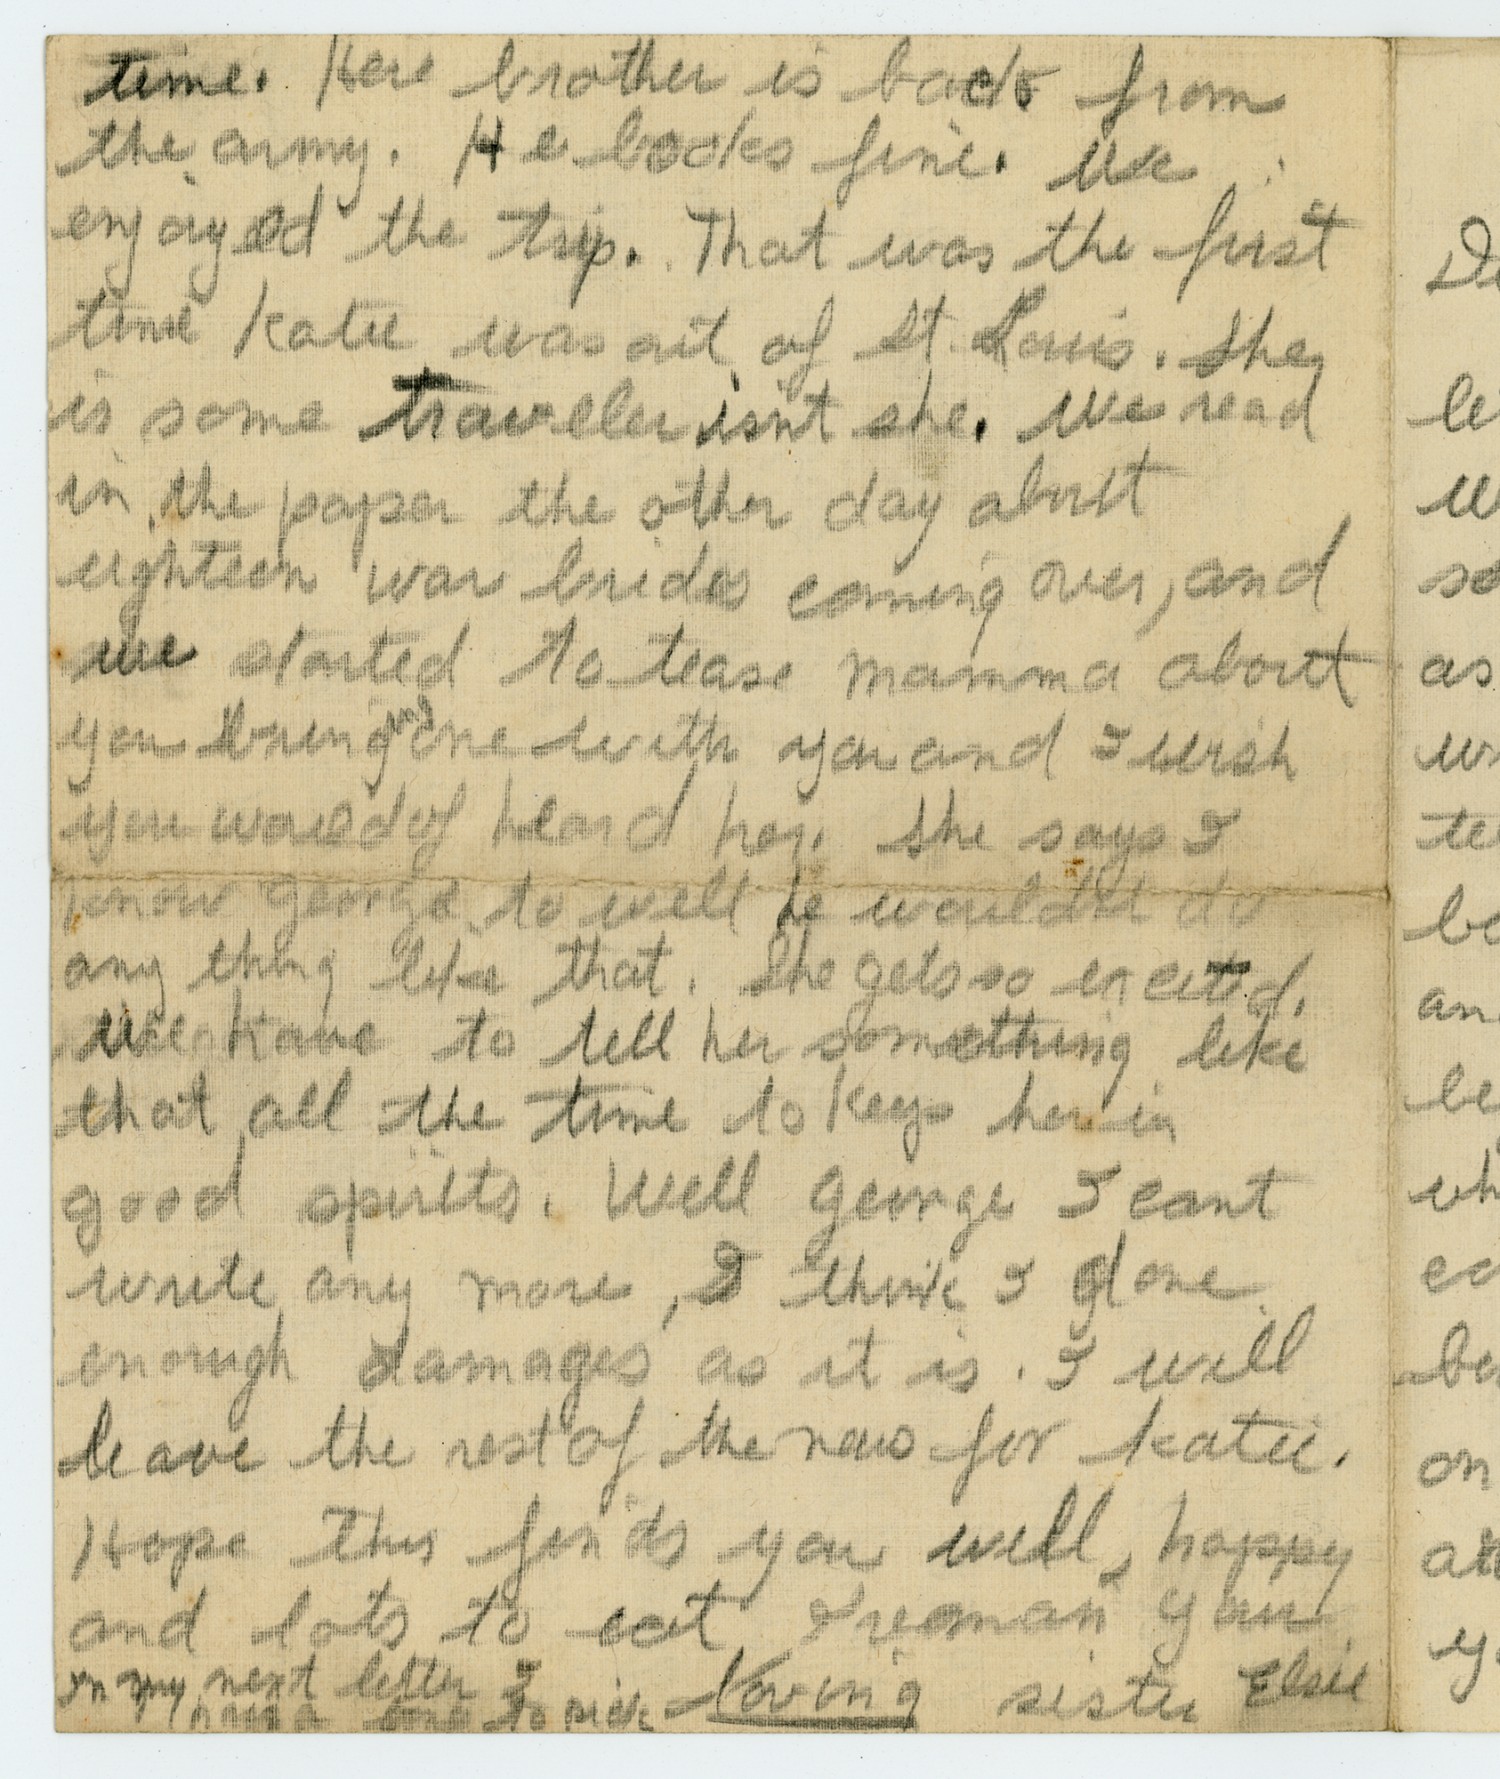 time. Here brother is back from
the army. He looks fine. We
enjoyed the trip. That was the first
time Katie was out of St. Louis. She
is some traveller isn't she. We read
in the paper the other day about
eighteen war brides coming over, and
we started to tease mamma about
you bring one with you and I wish
you would of heard her. She says I
know George to well he wouldn't do
any thing like that. She gets so excited.
We have to tell her something like
that all the time to keep her in
good spirits. Well George I cant
write any more, I think I done
enough damages as it is. I will
leave the rest of the news for Katie.
Hope this finds you well, happy
and lots to eat I remain your
In my next letter I
Loving sister Elsie
De
le
w
so
as
wr
te
bo
an
be
wh
ea
be
on
y